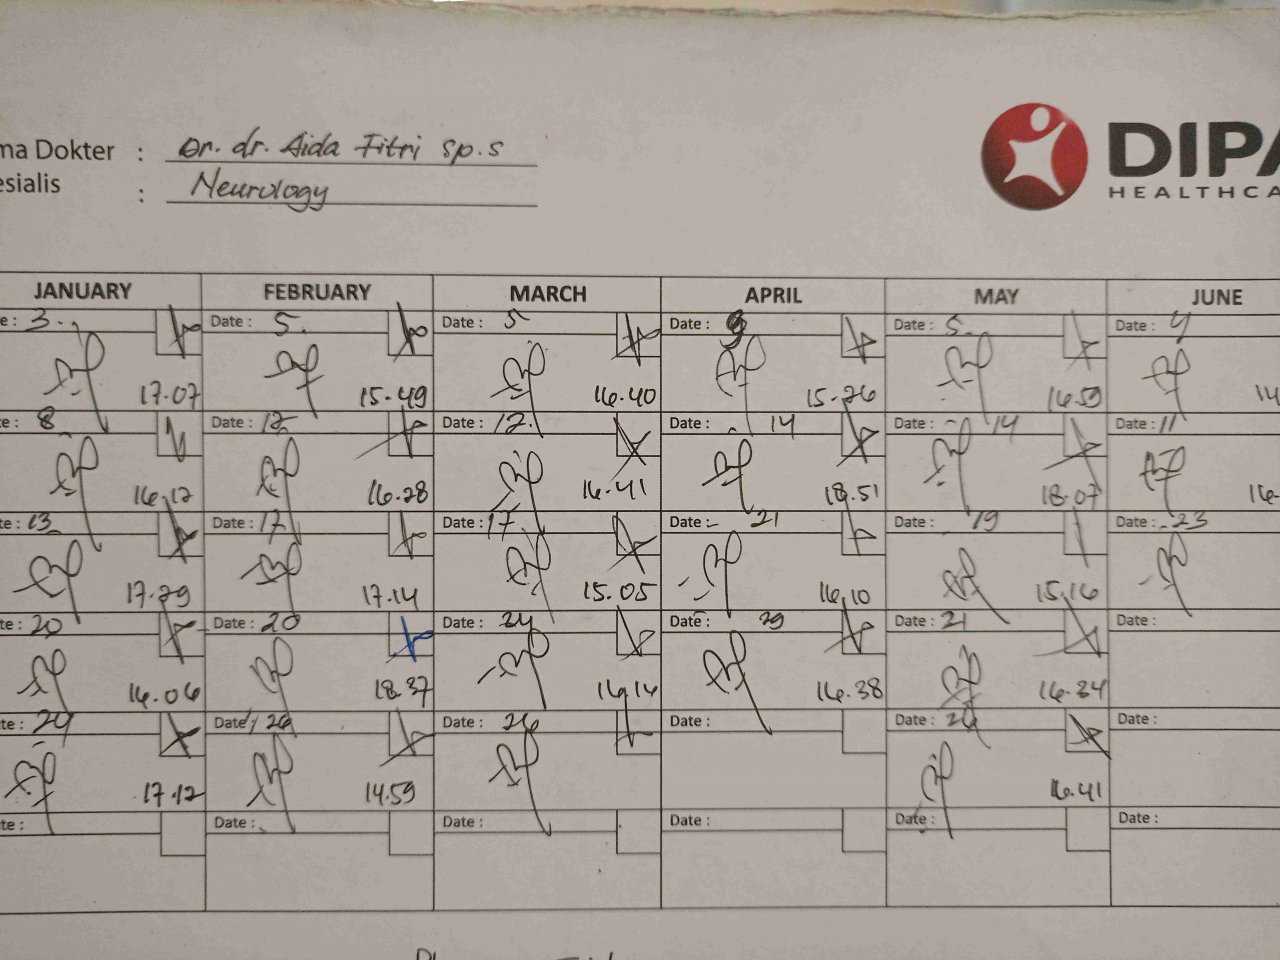 ma Dokter : Dr. dr. Aida Fitri sp.s
esialis : Neurology
DIPA
HEALTHCA
JANUARY FEBRUARY MARCH APRIL MAY JUNE
e : 3. Date : 5. Date : 5 Date : 9 Date : 5. Date : 4
17.07 15.49 16.40 15.26 16.59 14
te : 8 Date : 12 Date : 12. Date : 14 Date : 14 Date : 11
16.12 16.28 16.41 18.51 18.07 16.
te : 13 Date : 17 Date : 17 Date : 21 Date : 19 Date : 23
17.29 17.14 15.05 16.10 15.16
te : 20 Date : 20 Date : 24 Date : 29 Date : 21 Date :
16.06 18.37 16.16 16.38 16.34
te : 29 Date : 26 Date : 26 Date : Date : 26 Date :
17.12 14.59 16.41
te : Date : Date : Date : Date : Date :